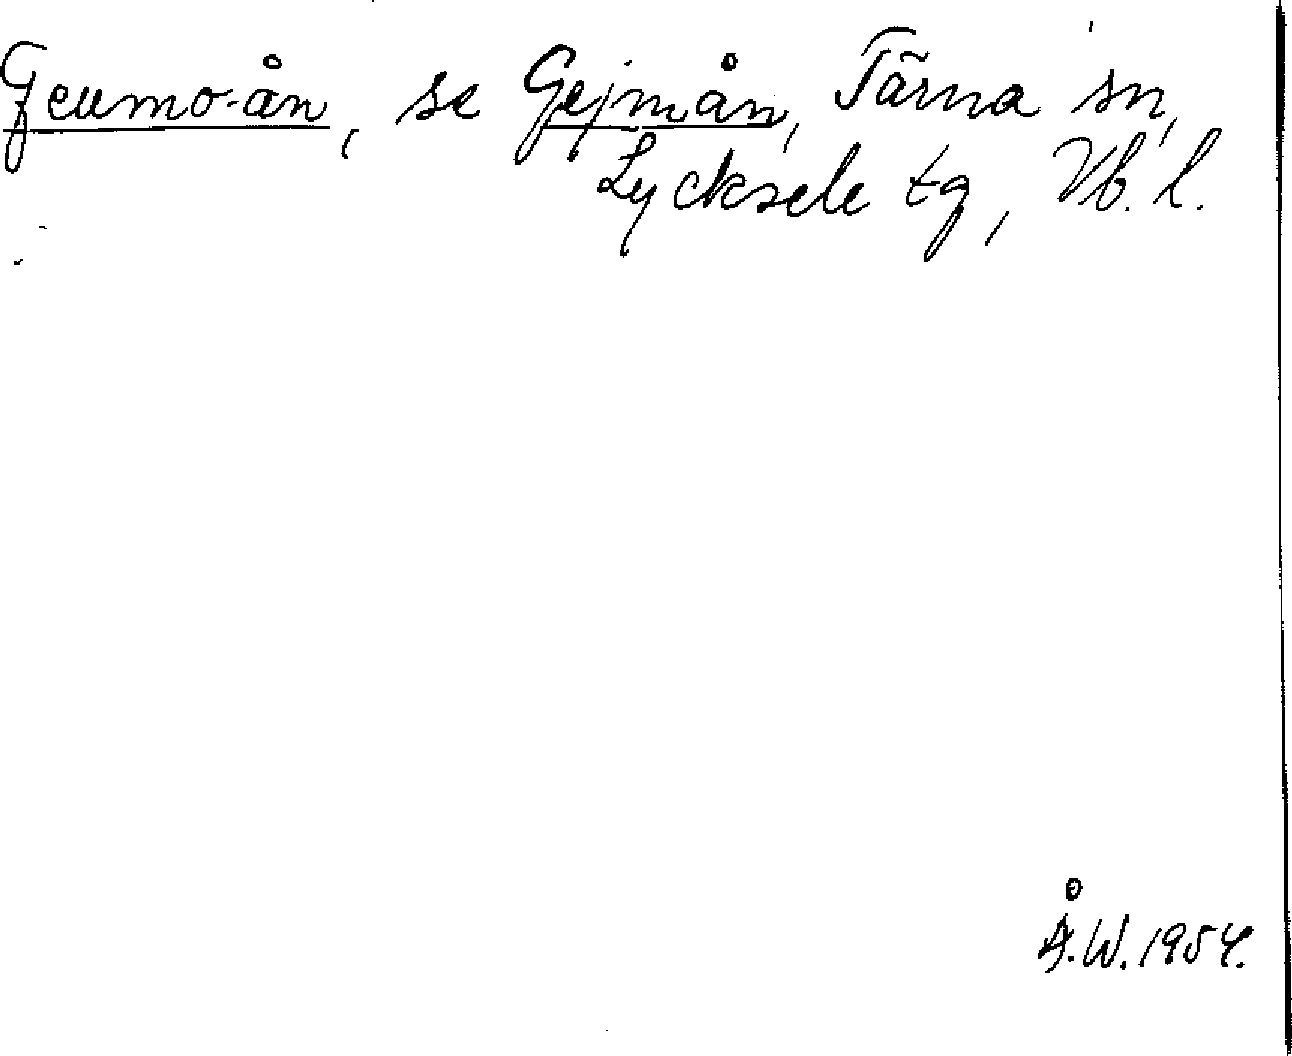 Geumo-ån, se Gejmån, Tärna sn,
Lycksele tg, Vb. l.
Å.W. 1954.